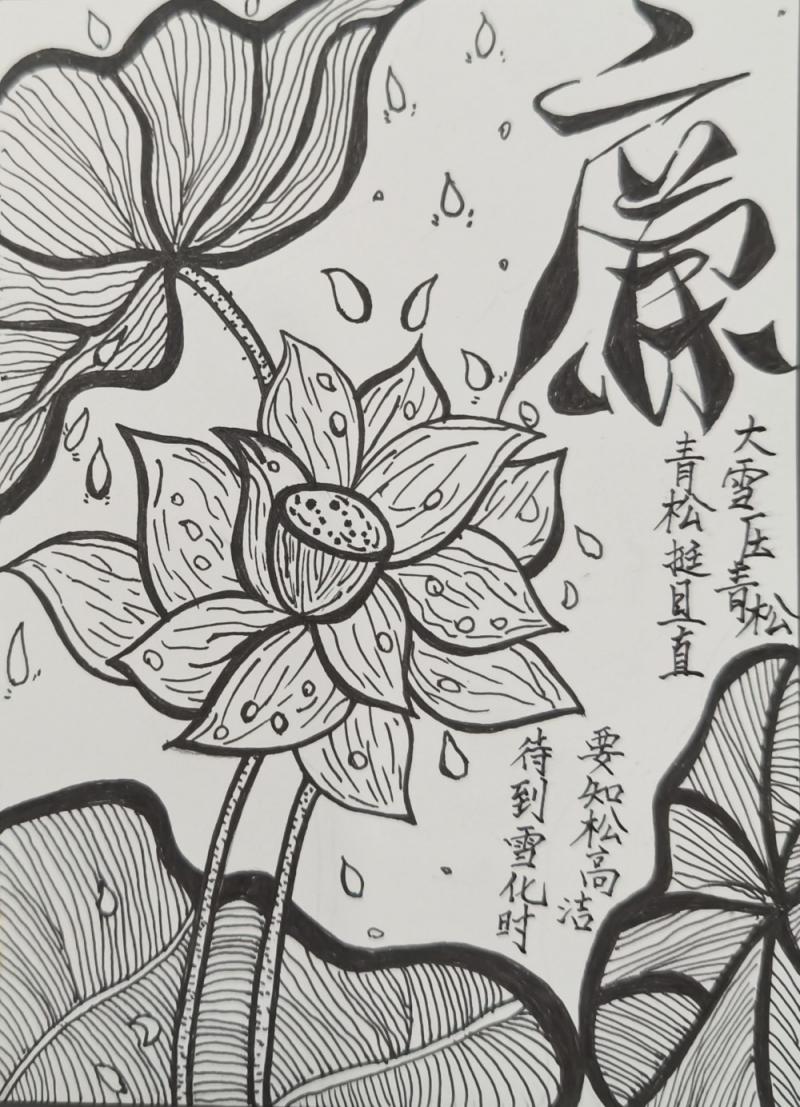 廉
大雪压青松
青松挺且直
要知松高洁
待到雪化时